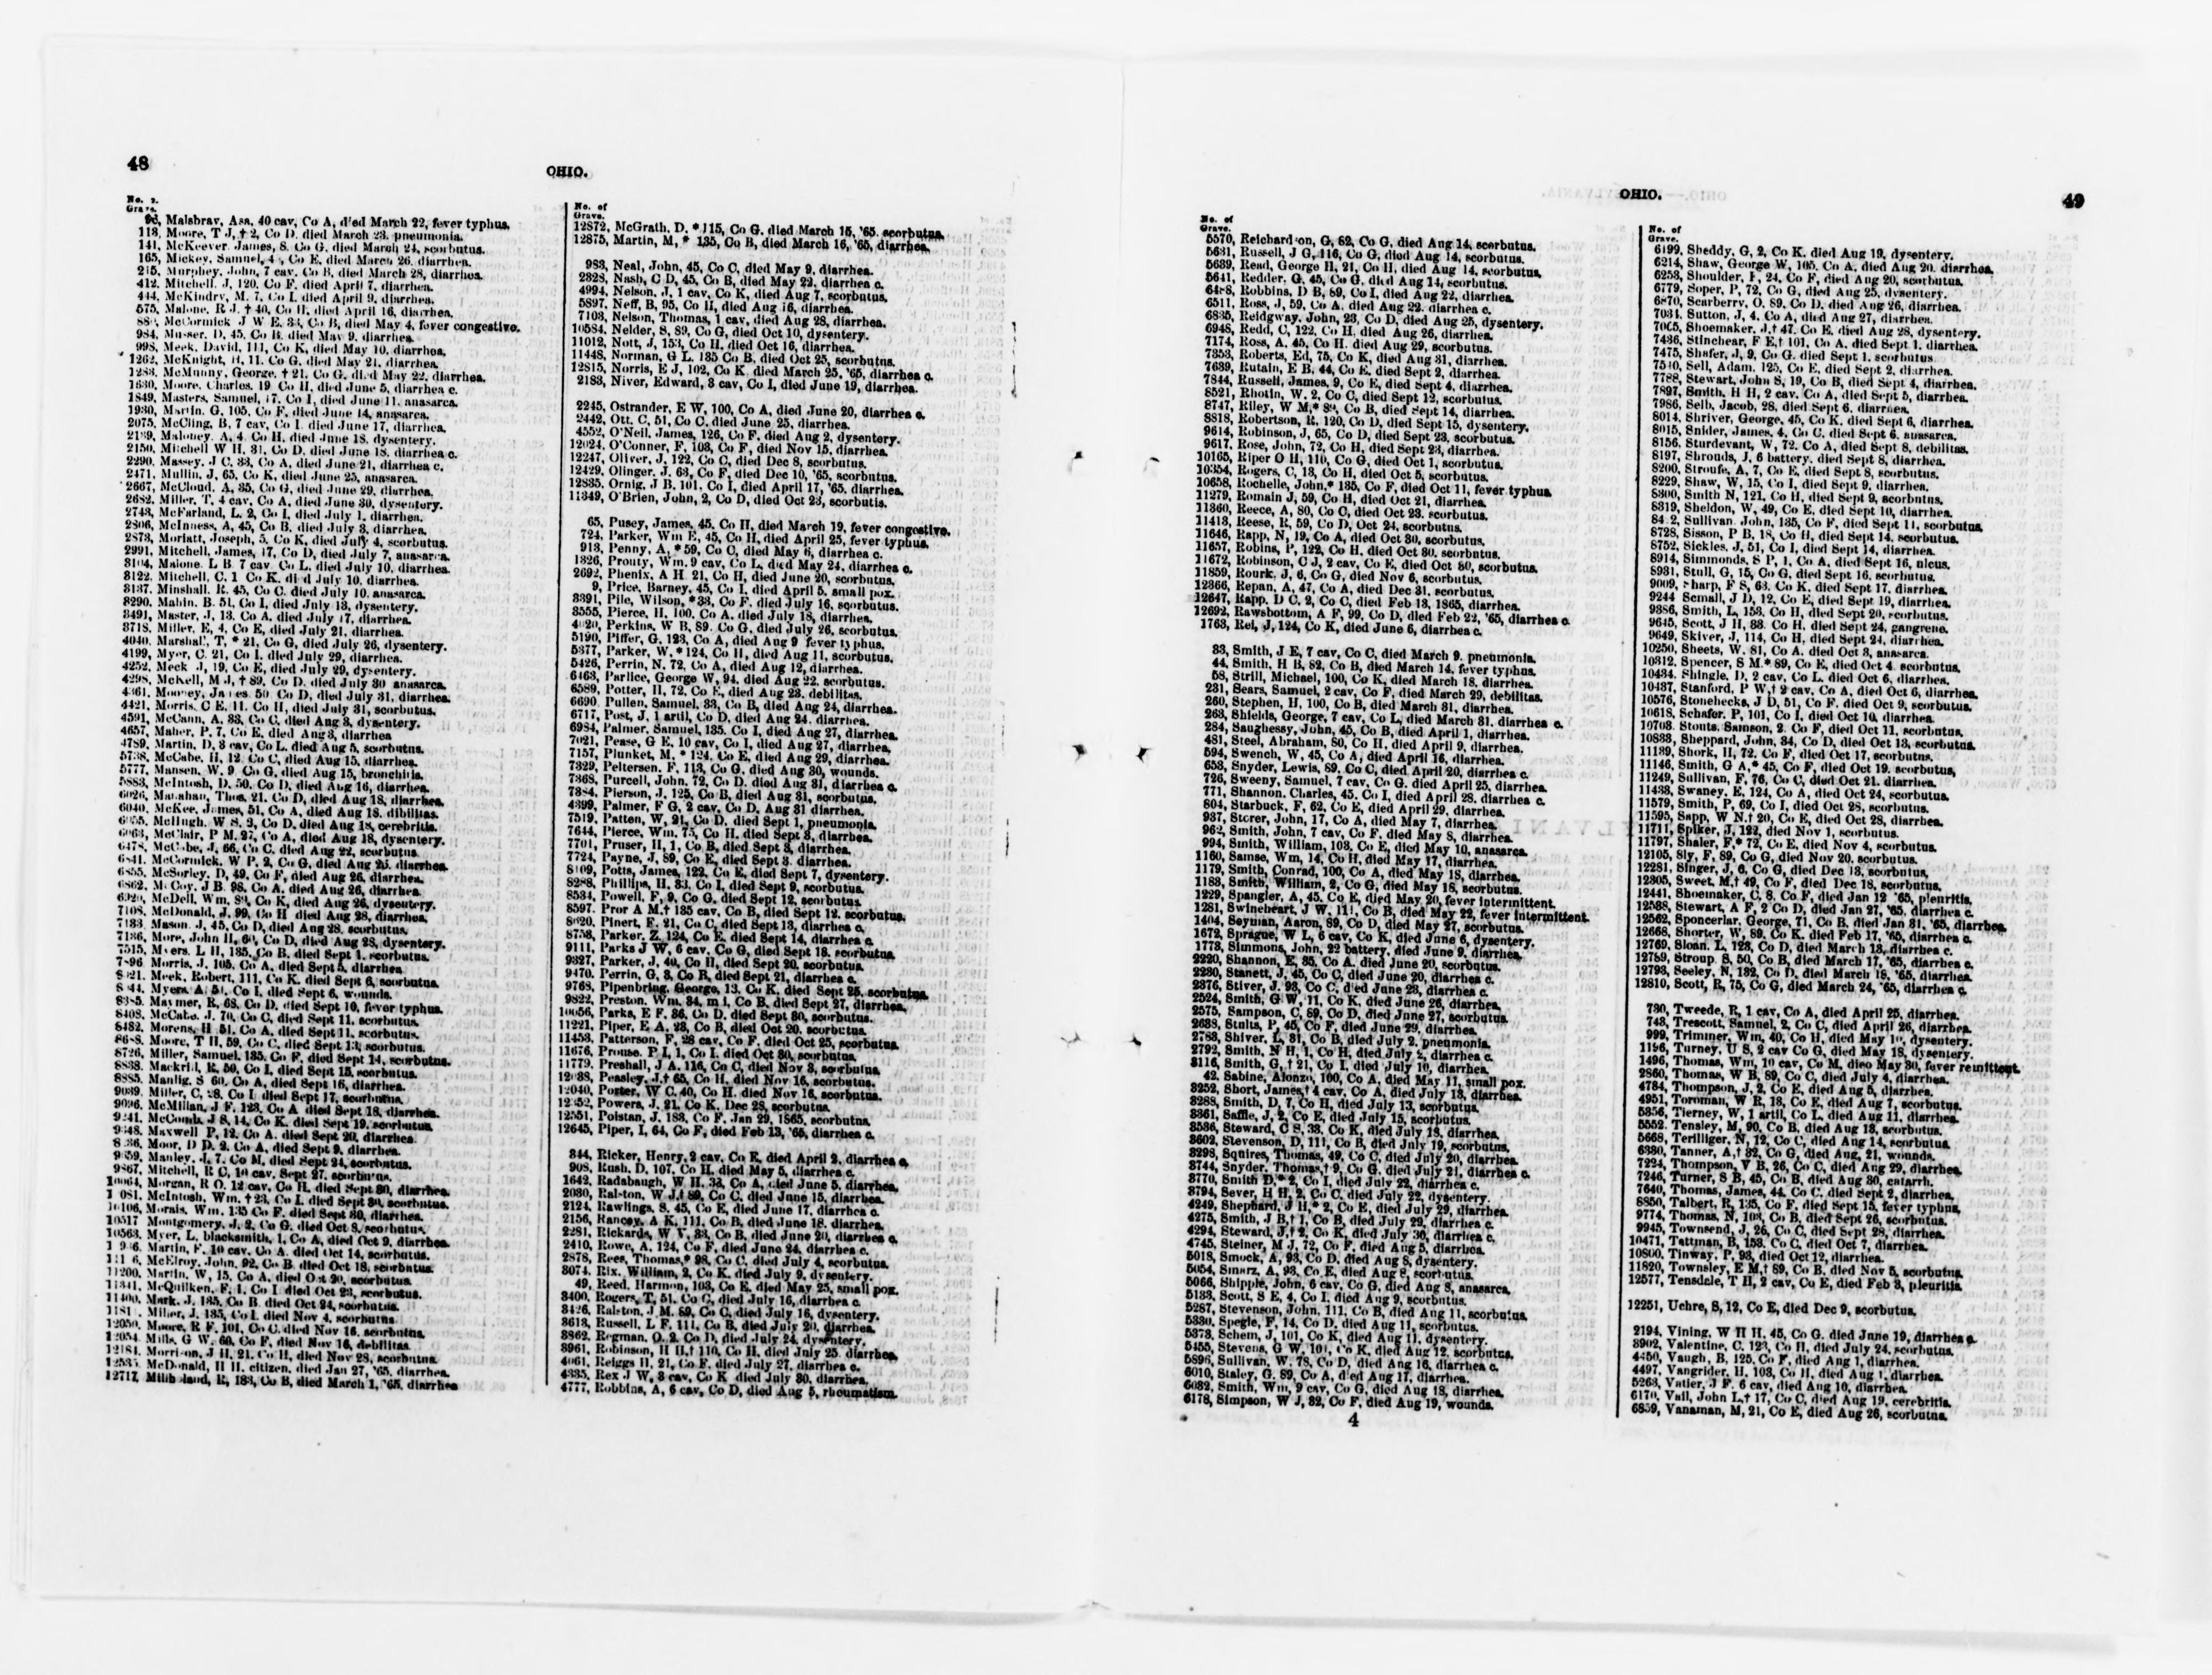 48
OHIO.
No. of
Grave.
96, Malsbray, Asa, 40 cav, Co A, died March 22, fever typhus.
113, Moore, T J, † 2, Co D, died March 23, pneumonia.
141, McKeever, James, 8, Co G, died March 24, scorbutus.
165, Mickey, Samuel, Co E, died March 26, diarrhea.
215, Murphey, John, 7 cav, Co B, died March 28, diarrhea.
412, Mitchell, J, 120, Co F, died April 7, diarrhea.
444, McKindry, M, 7, Co I, died April 9, diarrhea.
575, Malone, R J, † 40, Co H, died April 16, diarrhea.
McCormick J W E, 33, Co B, died May 4, fever congestive.
984, Musser, D, 45, Co B, died May 9, diarrhea.
998, Meek, David, 111, Co K, died May 10, diarrhea.
1262, McKnight, H, 11, Co G, died May 21, diarrhea.
1283, McMunny, George, † 21, Co G, died May 22, diarrhea.
1630, Moore, Charles, 19 Co H, died June 5, diarrhea c.
1849, Masters, Samuel, 17, Co I, died June 11, anasarca.
1930, Martin, G, 105, Co F, died June 14, anasarca.
2075, McCling, B, 7 cav, Co I, died June 17, diarrhea.
2139, Maloney, A, 4, Co H, died June 18, dysentery.
2150, Mitchell W H, 31, Co D, died June 18, diarrhea c.
2290, Massey, J C, 33, Co A, died June 21, diarrhea c.
2471, Mullin, J, 65, Co K, died June 25, anasarca.
2667, McCloud, A, 35, Co G, died June 29, diarrhea.
2682, Miller, T, 4 cav, Co A, died June 30, dysentery.
2743, McFarland, L, 2, Co I, died July 1, diarrhea.
2806, McInness, A, 45, Co B, died July 3, diarrhea.
2873, Moriatt, Joseph, 5, Co K, died July 4, scorbutus.
2991, Mitchell, James, 17, Co D, died July 7, anasarca.
3104, Malone, L B, 7 cav, Co L, died July 10, diarrhea.
3122, Mitchell, C, 1 Co K, died July 10, diarrhea.
3137, Minshall, R, 45, Co C, died July 10, anasarca.
3290, Mahin, B, 51, Co I, died July 13, dysentery.
3491, Master, J, 13, Co A, died July 17, diarrhea.
3718, Miller, E, 4, Co E, died July 21, diarrhea.
4040, Marshall, T, * 21, Co G, died July 26, dysentery.
4199, Myer, C, 21, Co I, died July 29, diarrhea.
4252, Meck J, 19, Co E, died July 29, dysentery.
4298, McKell, M J, † 89, Co D, died July 30 anasarca.
4361, Mooney, James, 50 Co D, died July 31, diarrhea.
4421, Morris, C E, 11, Co H, died July 31, scorbutus.
4591, McCann, A, 33, Co C, died Aug 3, dysentery.
4657, Maher, P, 7, Co E, died Aug 3, diarrhea
4789, Martin, D, 3 cav, Co L, died Aug 5, scorbutus.
5738, McCabe, H, 12, Co C, died Aug 15, diarrhea.
5777, Mansen, W, 9 Co G, died Aug 15, bronchitis.
5883, McIntosh, D, 50, Co D, died Aug 16, diarrhea.
6026, Manahan, Thos, 21, Co D, died Aug 18, diarrhea.
6040, McKee, James, 51, Co A, died Aug 18, dibilitas.
McHugh, W S, 2, Co D, died Aug 18, cerebritis.
6063, McClair, P M, 27, Co A, died Aug 18, dysentery.
6478, McCabe, J, 66, Co C, died Aug 22, scorbutus.
McCormick, W P, 2, Co G, died Aug 25, diarrhea.
McSorley, D, 49, Co F, died Aug 26, diarrhea.
6862, McCoy, J B, 98, Co A, died Aug 26, diarrhea.
McDell, Wm, Co K, died Aug 26, dysentery.
7108, McDonald, J, 99, Co H died Aug 28, diarrhea.
7133, Mason, J, 45, Co D, died Aug 28, scorbutus.
7136, More, John H, 60, Co D, died Aug 28, dysentery.
7515, Myers, L H, 135, Co B, died Sept 1, scorbutus.
Morris, J, 105, Co A, died Sept 5, diarrhea.
Meek, Robert, 111, Co K, died Sept 6, scorbutus.
Myers, A, 51, Co I, died Sept 6, wounds.
Maymer, R, 68, Co D, died Sept 10, fever typhus.
8408, McCabe, J, 70, Co C, died Sept 11, scorbutus.
8482, Morens, H 51, Co A, died Sept 11, scorbutus.
Moore, T H, 59, Co C, died Sept 13, scorbutus.
8726, Miller, Samuel, 135, Co F, died Sept 14, scorbutus.
8838, Mackril, R, 50, Co I, died Sept 15, scorbutus.
8885, Manlig, S 60, Co A, died Sept 16, diarrhea.
9039, Miller, C, 28, Co I died Sept 17, scorbutus.
9096, McMillan, J F, 123, Co A died Sept 18, diarrhea.
McComb, J S, 14, Co K, died Sept 19, scorbutus.
Maxwell P, 12, Co A, died Sept 20, diarrhea.
Moor, D D, 2, Co A, died Sept 9, diarrhea.
Manley, J, 7, Co M, died Sept 24, scorbutus.
9867, Mitchell, R C, 10 cav, Sept 27, scorbutus.
10064, Morgan, R O, 12 cav, Co H, died Sept 30, diarrhea.
McIntosh, Wm, † 23, Co I, died Sept 30, scorbutus.
10106, Morais, Wm, 135 Co F, died Sept 30, diarrhea.
10517 Montgomery, J, 2, Co G, died Oct 8, scorbutus.
10563, Myer, L, blacksmith, 1, Co A, died Oct 9, diarrhea.
Martin, F, 10 cav, Co A, died Oct 14, scorbutus.
McElroy, John, 92, Co B, died Oct 18, scorbutus.
11200, Martin, W, 15, Co A, died Oct 20, scorbutus.
11341, McQuilken, F, 1, Co I died Oct 23, scorbutus.
11400, Mark, J, 135, Co B, died Oct 24, scorbutus.
Miller, J, 135, Co I, died Nov 4, scorbutus.
12050, Moore, R F, 101, Co C, died Nov 16, scorbutus.
12054, Mills, G W, 60, Co F, died Nov 16, debilitas.
12181, Morrison, J H, 21, Co H, died Nov 28, scorbutus.
12535, McDonald, H H, citizen, died Jan 27, '65, diarrhea.
12717, R, 183, Co B, died March 1, '65, diarrhea
No. of
Grave.
12872, McGrath, D, * 115, Co G, died March 15, '65, scorbutus.
12875, Martin, M, * 135, Co B, died March 16, '65, diarrhea.
983, Neal, John, 45, Co C, died May 9, diarrhea.
2828, Nash, C D, 45, Co B, died May 22, diarrhea c.
4994, Nelson, J, 1 cav, Co K, died Aug 7, scorbutus.
5897, Neff, B, 95, Co H, died Aug 16, diarrhea.
7103, Nelson, Thomas, 1 cav, died Aug 28, diarrhea.
10584, Nelder, S, 89, Co G, died Oct 10, dysentery.
11012, Nott, J, 153, Co H, died Oct 16, diarrhea.
11448, Norman, G L, 135 Co B, died Oct 25, scorbutus.
12815, Norris, E J, 102, Co K, died March 25, '65, diarrhea c.
2183, Niver, Edward, 3 cav, Co I, died June 19, diarrhea.
2245, Ostrander, E W, 100, Co A, died June 20, diarrhea c.
2442, Ott, C, 51, Co C, died June 25, diarrhea.
4552, O'Neil, James, 126, Co F, died Aug 2, dysentery.
12024, O'Conner, F, 103, Co F, died Nov 15, diarrhea.
12247, Oliver, J, 122, Co C, died Dec 8, scorbutus.
12429, Olinger, J, 63, Co F, died Dec 10, '65, scorbutus.
12835, Ornig, J B, 101, Co I, died April 17, '65, diarrhea.
11349, O'Brien, John, 2, Co D, died Oct 23, scorbutis.
65, Pusey, James, 45, Co H, died March 19, fever congestive.
724, Parker, Wm E, 45, Co H, died April 25, fever typhus.
913, Penny, A, * 59, Co C, died May 6, diarrhea c.
1326, Prouty, Wm, 9 cav, Co L, died May 24, diarrhea c.
2692, Phenix, A H, 21, Co H, died June 20, scorbutus.
9, Price, Barney, 45, Co I, died April 5, small pox.
3391, Pile, Wilson, *33, Co F, died July 16, scorbutus.
3555, Pierce, H, 100, Co A, died July 18, diarrhea.
4020, Perkins, W B, 89, Co G, died July 26, scorbutus.
5190, Piffer, G, 123, Co A, died Aug 9 fever typhus.
5377, Parker, W, * 124, Co H, died Aug 11, scorbutus.
5426, Perrin, N, 72, Co A, died Aug 12, diarrhea.
6463, Parlice, George W, 94, died Aug 22, scorbutus.
6589, Potter, H, 72, Co E, died Aug 23, debilitas.
6690, Pullen, Samuel, 33, Co B, died Aug 24, diarrhea.
6717, Post, J, 1 artil, Co D, died Aug 24, diarrhea.
6984, Palmer, Samuel, 135, Co I, died Aug 27, diarrhea.
7021, Pease, G E, 10 cav, Co I, died Aug 27, diarrhea.
7157, Plunket, M, * 124, Co E, died Aug 29, diarrhea.
7329, Peltersen, F, 113, Co G, died Aug 30, wounds.
7368, Purcell, John, 72, Co D, died Aug 31, diarrhea c.
7384, Pierson, J, 125, Co B, died Aug 31, scorbutus.
4399, Palmer, F G, 2 cav, Co D, Aug 31 diarrhea.
7519, Patten, W, 21, Co D, died Sept 1, pneumonia.
7644, Pierce, Wm, 75, Co H, died Sept 3, diarrhea.
7701, Pruser, H, 1, Co B, died Sept 3, diarrhea.
7724, Payne, J, 89, Co E, died Sept 3, diarrhea.
8109, Potts, James, 122, Co E, died Sept 7, dysentery.
8288, Phillips, H, 33, Co I, died Sept 9, scorbutus.
8534, Powell, F, 9, Co G, died Sept 12, scorbutus.
8597, Pror A M, † 135 cav, Co B, died Sept 12, scorbutus.
Pinert, F, 21, Co C, died Sept 13, diarrhea c.
8758, Parker, Z, 124, Co E, died Sept 14, diarrhea c.
9111, Parks J W, 6 cav, Co G, died Sept 18, scorbutus.
9327, Parker, J, 40, Co H, died Sept 20, scorbutus.
9470, Perrin, G, 3, Co B, died Sept 21, diarrhea c.
9768, Pipenbring, George, 13, Co K, died Sept 25, scorbutus.
9822, Preston, Wm, 34, m i, Co B, died Sept 27, diarrhea.
10056, Parks, E F, 36, Co D, died Sept 30, scorbutus.
11221, Piper, E A, 23, Co B, died Oct 20, scorbutus.
11453, Patterson, F, 28 cav, Co F, died Oct 25, scorbutus.
11676, Prouse, P I, 1, Co I, died Oct 30, scorbutus.
11779, Preshall, J A, 116, Co C, died Nov 3, scorbutus.
12038, Peasley, J, † 65, Co H, died Nov 16, scorbutus.
12040, Porter, W C, 40, Co H, died Nov 16, scorbutus.
12352, Powers, J, 21, Co K, Dec 28, scorbutus.
12551, Poistan, J, 183, Co F, Jan 29, 1865, scorbutus.
12645, Piper, I, 64, Co F, died Feb 13, '65, diarrhea c.
344, Ricker, Henry, 2 cav, Co E, died April 2, diarrhea c.
908, Rush, D, 107, Co H, died May 5, diarrhea c.
1642, Radabaugh, W H, 33, Co A, died June 5, diarrhea.
2030, Ralston, W J, † 89, Co C, died June 15, diarrhea.
2124, Rawlings, S, 45, Co E, died June 17, diarrhea c.
2156, Rancey, A K, 111, Co B, died June 18, diarrhea.
2281, Rickards, W V, 33, Co B, died June 20, diarrhea c.
2410, Rowe, A, 124, Co F, died June 24, diarrhea c.
2878, Rees, Thomas, * 98, Co C, died July 4, scorbutus.
3074, Rix, William, 2, Co K, died July 9, dysentery.
49, Reed, Harmon, 103, Co E, died May 25, small pox.
3400, Rogers, T, 51, Co G, died July 16, diarrhea c.
3426, Ralston, J M, 89, Co C, died July 16, dysentery.
3613, Russell, L F, 111, Co B, died July 20, diarrhea.
3862, Regman, O, 2, Co D, died July 24, dysentery.
3961, Robinson, H H, † 110, Co H, died July 25, diarrhea.
4061, Reiggs H, 21, Co F, died July 27, diarrhea c.
4335, Rex J W, 3 cav, Co K died July 30, diarrhea.
4777, Robbins, A, 6 cav, Co D, died Aug 5, rheumatism.
OHIO.
49
No. of
Grave.
5570, Reichardson, G, 62, Co G, died Aug 14, scorbutus.
5631, Russell, J G, 116, Co G, died Aug 14, scorbutus.
5639, Read, George H, 21, Co H, died Aug 14, scorbutus.
5641, Redder, G, 45, Co G, died Aug 14, scorbutus.
Robbins, D B, 89, Co I, died Aug 22, diarrhea.
6511, Ross, J, 59, Co A, died Aug 22, diarrhea c.
6835, Reidgway, John, 23, Co D, died Aug 25, dysentery.
6948, Redd, C, 122, Co H, died Aug 26, diarrhea.
7174, Ross, A, 45, Co H, died Aug 29, scorbutus.
7353, Roberts, Ed, 75, Co K, died Aug 31, diarrhea.
7639, Rutain, E B, 44, Co E, died Sept 2, diarrhea.
7844, Russell, James, 9, Co E, died Sept 4, diarrhea.
8521, Rhotin, W, 2, Co C, died Sept 12, scorbutus.
8747, Riley, W M, * Co B, died Sept 14, diarrhea.
8818, Robertson, R, 120, Co D, died Sept 15, dysentery.
9614, Robinson, J, 65, Co D, died Sept 23, scorbutus.
9617, Rose, John, 72, Co H, died Sept 23, diarrhea.
10165, Riper O H, 110, Co G, died Oct 1, scorbutus.
10354, Rogers, C, 13, Co H, died Oct 5, scorbutus.
10658, Rochelle, John, * 135, Co F, died Oct 11, fever typhus.
11279, Romain J, 59, Co H, died Oct 21, diarrhea.
11360, Reece, A, 80, Co C, died Oct 23, scorbutus.
11413, Reese, R, 59, Co D, Oct 24, scorbutus.
11646, Rapp, N, 19, Co A, died Oct 30, scorbutus.
11657, Robins, P, 122, Co H, died Oct 30, scorbutus.
11672, Robinson, C J, 2 cav, Co E, died Oct 30, scorbutus.
11859, Rourk, J, 6, Co G, died Nov 6, scorbutus.
12366, Repan, A, 47, Co A, died Dec 31, scorbutus.
12647, Rapp, D C, 2, Co C, died Feb 13, 1865, diarrhea.
12692, Rawsbottom, A F, 99, Co D, died Feb 22, '65, diarrhea c.
1763, Rei, J, 124, Co K, died June 6, diarrhea c.
33, Smith, J E, 7 cav, Co C, died March 9, pneumonia.
44, Smith, H B, 82, Co B, died March 14, fever typhus.
58, Strill, Michael, 100, Co K, died March 18, diarrhea.
231, Sears, Samuel, 2 cav, Co F, died March 29, debilitas.
260, Stephen, H, 100, Co B, died March 31, diarrhea.
263, Shields, George, 7 cav, Co L, died March 31, diarrhea c.
284, Saughessy, John, 45, Co B, died April 1, diarrhea.
481, Steel, Abraham, 80, Co H, died April 9, diarrhea.
594, Swench, W, 45, Co A, died April 16, diarrhea.
653, Snyder, Lewis, 89, Co C, died April 20, diarrhea c.
726, Sweeny, Samuel, 7 cav, Co G, died April 25, diarrhea.
771, Shannon, Charles, 45, Co I, died April 28, diarrhea c.
804, Starbuck, F, 62, Co E, died April 29, diarrhea.
937, Storer, John, 17, Co A, died May 7, diarrhea.
962, Smith, John, 7 cav, Co F, died May 8, diarrhea.
994, Smith, William, 103, Co E, died May 10, anasarca.
1160, Samse, Wm, 14, Co H, died May 17, diarrhea.
1179, Smith, Conrad, 100, Co A, died May 18, diarrhea.
1183, Smith, William, 2, Co G, died May 18, scorbutus.
1229, Spangler, A, 45, Co E, died May 20, fever intermittent.
1281, Swineheart, J W, 111, Co B, died May 22, fever intermittent.
1404, Seyman, Aaron, 89, Co D, died May 27, scorbutus.
1672, Sprague, W L, 6 cav, Co K, died June 6, dysentery.
1773, Simmons, John, 22 battery, died June 9, diarrhea.
2220, Shannon, E, 35, Co A, died June 20, scorbutus.
2230, Stanett, J, 45, Co C, died June 20, diarrhea c.
2376, Stiver, J, 93, Co C, died June 23, diarrhea c.
2524, Smith, G W, 11, Co K, died June 26, diarrhea.
2575, Sampson, C, 89, Co D, died June 27, scorbutus.
2688, Stults, P, 45, Co F, died June 29, diarrhea.
2788, Shiver, L, 81, Co B, died July 2, pneumonia.
2792, Smith, N H, 1, Co H, died July 2, diarrhea c.
3116, Smith, G, † 21, Co I, died July 10, diarrhea.
42, Sabine, Alonzo, 100, Co A, died May 11, small pox.
3252, Short, James, † 4 cav, Co A, died July 13, diarrhea.
3288, Smith, D, 7, Co H, died July 13, scorbutus.
3361, Saffle, J, 2, Co E, died July 15, scorbutus.
3586, Steward, C S, 33, Co K, died July 18, diarrhea.
3602, Stevenson, D, 111, Co B, died July 19, scorbutus.
3298, Squires, Thomas, 49, Co C, died July 20, diarrhea.
3744, Snyder, Thomas, † 9, Co G, died July 21, diarrhea c.
3770, Smith D, * 2, Co I, died July 22, diarrhea c.
3794, Sever, H H, 2, Co C, died July 22, dysentery.
4249, Shephard, J H, * 2, Co E, died July 29, diarrhea.
4275, Smith, J B, † 1, Co B, died July 29, diarrhea c.
4294, Steward, J, † 2, Co K, died July 30, diarrhea c.
4745, Steiner, M J, 72, Co F, died Aug 5, diarrhea.
5018, Smock, A, 93, Co D, died Aug 8, dysentery.
5054, Smarz, A, 93, Co E, died Aug 8, scorbutus.
5066, Shipple, John, 6 cav, Co G, died Aug 8, anasarca.
5133, Scott, S E, 4, Co I, died Aug 9, scorbutus.
5287, Stevenson, John, 111, Co B, died Aug 11, scorbutus.
5330, Spegle, F, 14, Co D, died Aug 11, scorbutus.
5373, Schem, J, 101, Co K, died Aug 11, dysentery.
5455, Stevens, G W, 101, Co K, died Aug 12, scorbutus.
5896, Sullivan, W, 78, Co D, died Aug 16, diarrhea c.
6010, Staley, G, 89, Co A, died Aug 17, diarrhea.
6082, Smith, Wm, 9 cav, Co G, died Aug 18, diarrhea.
6178, Simpson, W J, 82, Co F, died Aug 19, wounds.
4
No. of
Grave.
6199, Sheddy, G, 2, Co K, died Aug 19, dysentery.
6214, Shaw, George W, 105, Co A, died Aug 20, diarrhea.
6253, Shoulder, E, 24, Co F, died Aug 20, scorbutus.
6779, Soper, P, 72, Co G, died Aug 25, dysentery.
6870, Scarberry, O, 89, Co D, died Aug 26, diarrhea.
7031, Sutton, J, 4, Co A, died Aug 27, diarrhea.
7065, Shoemaker, J, † 47, Co E, died Aug 28, dysentery.
7436, Stinchear, F E, † 101, Co A, died Sept 1, diarrhea.
7475, Shafer, J, 9, Co G, died Sept 1, scorbutus.
7510, Sell, Adam, 125, Co E, died Sept 2, diarrhea.
7788, Stewart, John S, 19, Co B, died Sept 4, diarrhea.
7897, Smith, H H, 2 cav, Co A, died Sept 5, diarrhea.
7986, Selb, Jacob, 28, died Sept 6, diarrhea.
8014, Shriver, George, 45, Co K, died Sept 6, diarrhea.
8015, Snider, James, 4, Co C, died Sept 6, anasarca.
8156, Sturdevant, W, 72, Co A, died Sept 8, debilitas.
8197, Shrouds, J, 6 battery, died Sept 8, diarrhea.
8200, Stroufe, A, 7, Co E, died Sept 8, scorbutus.
8229, Shaw, W, 15, Co I, died Sept 9, diarrhea.
8300, Smith N, 121, Co H, died Sept 9, scorbutus.
8319, Sheldon, W, 49, Co E, died Sept 10, diarrhea.
Sullivan, John, 135, Co F, died Sept 11, scorbutus.
8728, Sisson, P B, 18, Co H, died Sept 14, scorbutus.
8752, Sickles, J, 51, Co I, died Sept 14, diarrhea.
8914, Simmonds, S P, 1, Co A, died Sept 16, ulcus.
8931, Stull, G, 15, Co G, died Sept 16, scorbutus.
9009, Sharp, F S, 63, Co K, died Sept 17, diarrhea.
9244 Scmall, J D, 12, Co E, died Sept 19, diarrhea.
9386, Smith, L, 153, Co H, died Sept 20, scorbutus.
9645, Scott, J H, 33, Co H, died Sept 24, gangrene.
9649, Skiver, J, 114, Co H, died Sept 24, diarrhea.
10250, Sheets, W, 81, Co A, died Oct 3, anasarca.
10312, Spencer, S M, * 89, Co E, died Oct 4, scorbutus.
10434, Shingle, D, 2 cav, Co L, died Oct 6, diarrhea.
10437, Stanford, P W, † 2 cav, Co A, died Oct 6, diarrhea.
10576, Stonehecks, J D, 51, Co F, died Oct 9, scorbutus.
10618, Schafer, P, 101, Co I, died Oct 10, diarrhea.
10708, Stouts, Samson, 2, Co F, died Oct 11, scorbutus.
10833, Sheppard, John, 34, Co D, died Oct 13, scorbutus.
11139, Shork, H, 72, Co F, died Oct 17, scorbutus.
11146, Smith, G A, * 45, Co F, died Oct 19, scorbutus.
11249, Sullivan, F, 76, Co C, died Oct 21, diarrhea.
11438, Swaney, E, 124, Co A, died Oct 24, scorbutus.
11579, Smith, P, 69, Co I, died Oct 28, scorbutus.
11595, Sapp, W N, † 20, Co E, died Oct 28, diarrhea.
11711, Spiker, J, 122, died Nov 1, scorbutus.
11797, Shaler, F, * 72, Co E, died Nov 4, scorbutus.
12105, Sly, F, 89, Co G, died Nov 20, scorbutus.
12281, Singer, J, 6, Co G, died Dec 13, scorbutus.
12305, Sweet, M, † 49, Co F, died Dec 18, scorbutus.
12441, Shoemaker, C, 8, Co F, died Jan 12 '65, pleuritis.
12538, Stewart, A F, 2 Co D, died Jan 27, '65, diarrhea c.
12562, Sponcerlar, George, 71, Co B, died Jan 31, '65, diarrhea.
12668, Shorter, W, 89, Co K, died Feb 17, '65, diarrhea c.
12769, Sloan, L, 123, Co D, died March 13, diarrhea c.
12789, Stroup, S, 50, Co B, died March 17, '65, diarrhea c.
12793, Seeley, N, 132, Co D, died March 18, '65, diarrhea.
12810, Scott, R, 75, Co G, died March 24, '65, diarrhea c.
730, Tweede, R, 1 cav, Co A, died April 25, diarrhea.
743, Trescott, Samuel, 2, Co C, died April 26, diarrhea.
999, Trimmer, Wm, 40, Co H, died May 10, dysentery.
1196, Turney, U S, 2 cav Co G, died May 18, dysentery.
1496, Thomas, Wm, 10 cav, Co M, died May 30, fever remittent.
2860, Thomas, W B, 89, Co C, died July 4, diarrhea.
4784, Thompson, J, 2, Co E, died Aug 5, diarrhea.
4951, Toroman, W R, 13, Co E, died Aug 7, scorbutus.
5356, Tierney, W, 1 artil, Co L, died Aug 11, diarrhea.
5552, Tensley, M, 90, Co B, died Aug 13, scorbutus.
5668, Terilliger, N, 12, Co C, died Aug 14, scorbutus.
6380, Tanner, A, † 32, Co G, died Aug, 21, wounds.
7224, Thompson, V B, 26, Co C, died Aug 29, diarrhea.
7246, Turner, S B, 45, Co B, died Aug 30, catarrh.
7640, Thomas, James, 44, Co C, died Sept 2, diarrhea.
8850, Talbert, R, 135, Co F, died Sept 15, fever typhus.
9774, Thomas, N, 103, Co B, died Sept 26, scorbutus.
9945, Townsend, J, 26, Co C, died Sept 28, diarrhea.
10471, Tattman, B, 153, Co C, died Oct 7, diarrhea.
10800, Tinway, P, 93, died Oct 12, diarrhea.
11820, Townsley, E M, † 89, Co B, died Nov 5, scorbutus.
12577, Tensdale, T H, 2 cav, Co E, died Feb 3, pleuritis.
12251, Uchre, S, 12, Co E, died Dec 9, scorbutus.
2194, Vining, W H H, 45, Co G, died June 19, diarrhea c.
3902, Valentine, C, 123, Co H, died July 24, scorbutus.
4450, Vaugh, B, 125, Co F, died Aug 1, diarrhea.
4497, Vangrider, H, 103, Co H, died Aug 1, diarrhea.
5263, Vatier, J F, 6 cav, died Aug 10, diarrhea.
6170, Vail, John L, † 17, Co C, died Aug 19, cerebritis.
6859, Vanaman, M, 21, Co E, died Aug 26, scorbutus.